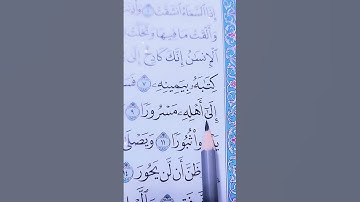 إِذَا ٱلسَّمَآءُ ٱنشَقَّتْ ١
وَأَلْقَتْ مَا فِيهَا وَتَخَلَّتْ
ٱلْإِنسَٰنُ إِنَّكَ كَادِحٌ إِلَىٰ
كِتَٰبَهُۥ بِيَمِينِهِۦ ٧
إِلَىٰٓ أَهْلِهِۦ مَسْرُورًا ٩
ثُبُورًا ١١ وَيَصْلَىٰ
ظَنَّ أَن لَّن يَحُورَ ١٤